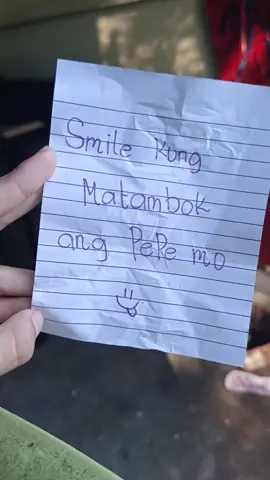 Smile kung
Matambok
ang PePe mo